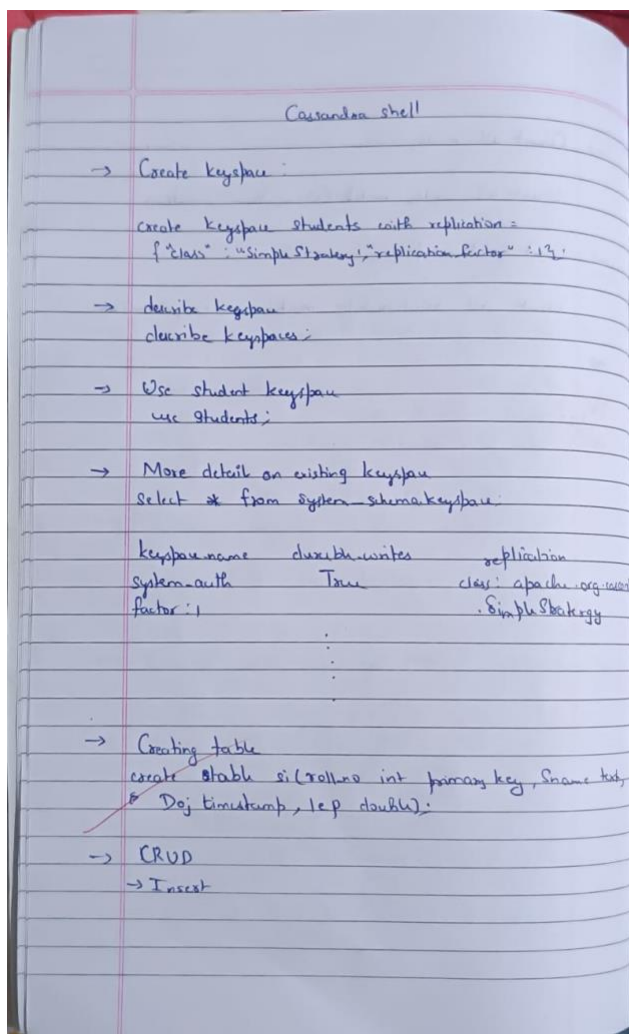 Cassandra shell
→ Create keyspace :
create keyspace students with replication =
{ "class" : "Simple Strategy", "replication_factor" : 1};
→ describe keyspace
describe keyspaces;
→ Use student keyspace
use students;
→ More detail on existing keyspace
select * from system_schema.keyspace;
keyspace.name durable.writes replication
system_auth True class : apache.org.
factor : 1 .Simple Stratergy
→ Creating table
create stable si (roll.no int primary key, Sname text,
Doj timestamp, lep double);
→ CRUD
→ Insert